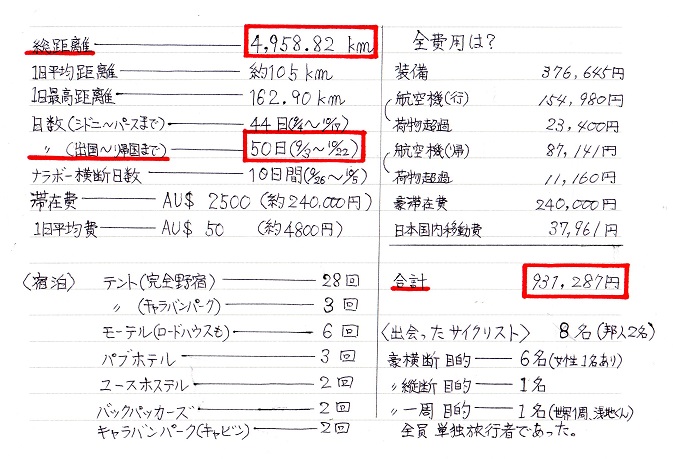 総距離 4,958.82 km
1日平均距離 約105km
1日最高距離 162.90km
日数(シドニ〜パースまで) 44日
〃 (出国〜帰国まで) 50日(9/3〜10/22)
ナラボー横断日数 10日間(9/26〜10/5)
滞在費 AU$ 2500 (約240,000円)
1日平均費 AU$ 50 (約4800円)
〈宿泊〉 テント(完全野宿) 28回
〃 (キャラバンパーク) 3回
モーテル(ロードハウスも) 6回
パブホテル 3回
ユースホステル 2回
バックパッカーズ 2回
キャラバンパーク(キャビン) 2回
全費用は?
装備 376,645円
航空機(行) 154,980円
荷物超過 23,400円
航空機(帰) 87,141円
荷物超過 11,160円
豪滞在費 240,000円
日本国内移動費 37,961円
合計 931,287円
〈出会ったサイクリスト〉 8名(邦人2名)
豪横断目的 6名(女性1名あり)
〃縦断目的 1名
〃一周目的 1名(世界1周、浅地くん)
全員単独旅行者であった。